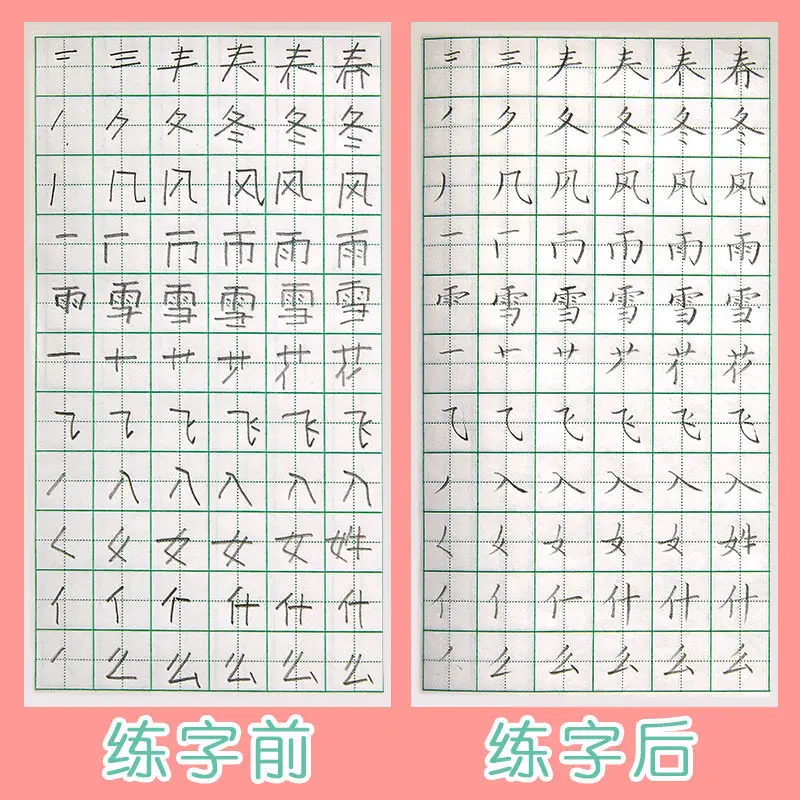 二 三 丰 夫 春
丿 夕 夂 冬 冬 冬
几 风 风 风
一 厂 帀 雨 雨
雨 雪 雪 雪 雪 雪
一 十 艹 花 花
飞 飞 飞 飞
丿 入 入 入 入 入
女 女 女 姓
亻 亻 什 什 什
丿 么 么 么 么 么
练字前
二 三 丰 夫 春
丿 夕 夂 冬 冬 冬
丿 几 风 风 风
一 厂 雨 雨
雨 雪 雪 雪 雪 雪
一 十 艹 花 花
飞 飞 飞 飞
丿 入 入 入 入 入
女 女 女 姓
亻 亻 什 什 什
丿 么 么 么 么 么
练字后